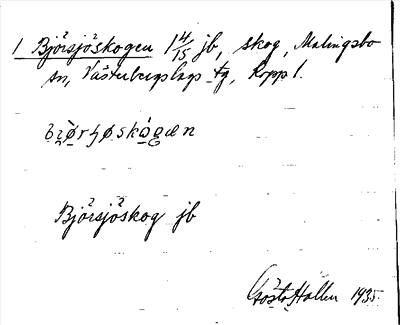 1 Björsjöskogen 1 4/15 jb, skog, Malingsbo
sn, Västerbergslags tg, Kopp l.
Björsjöskog jb
Gösta Hallen 1935